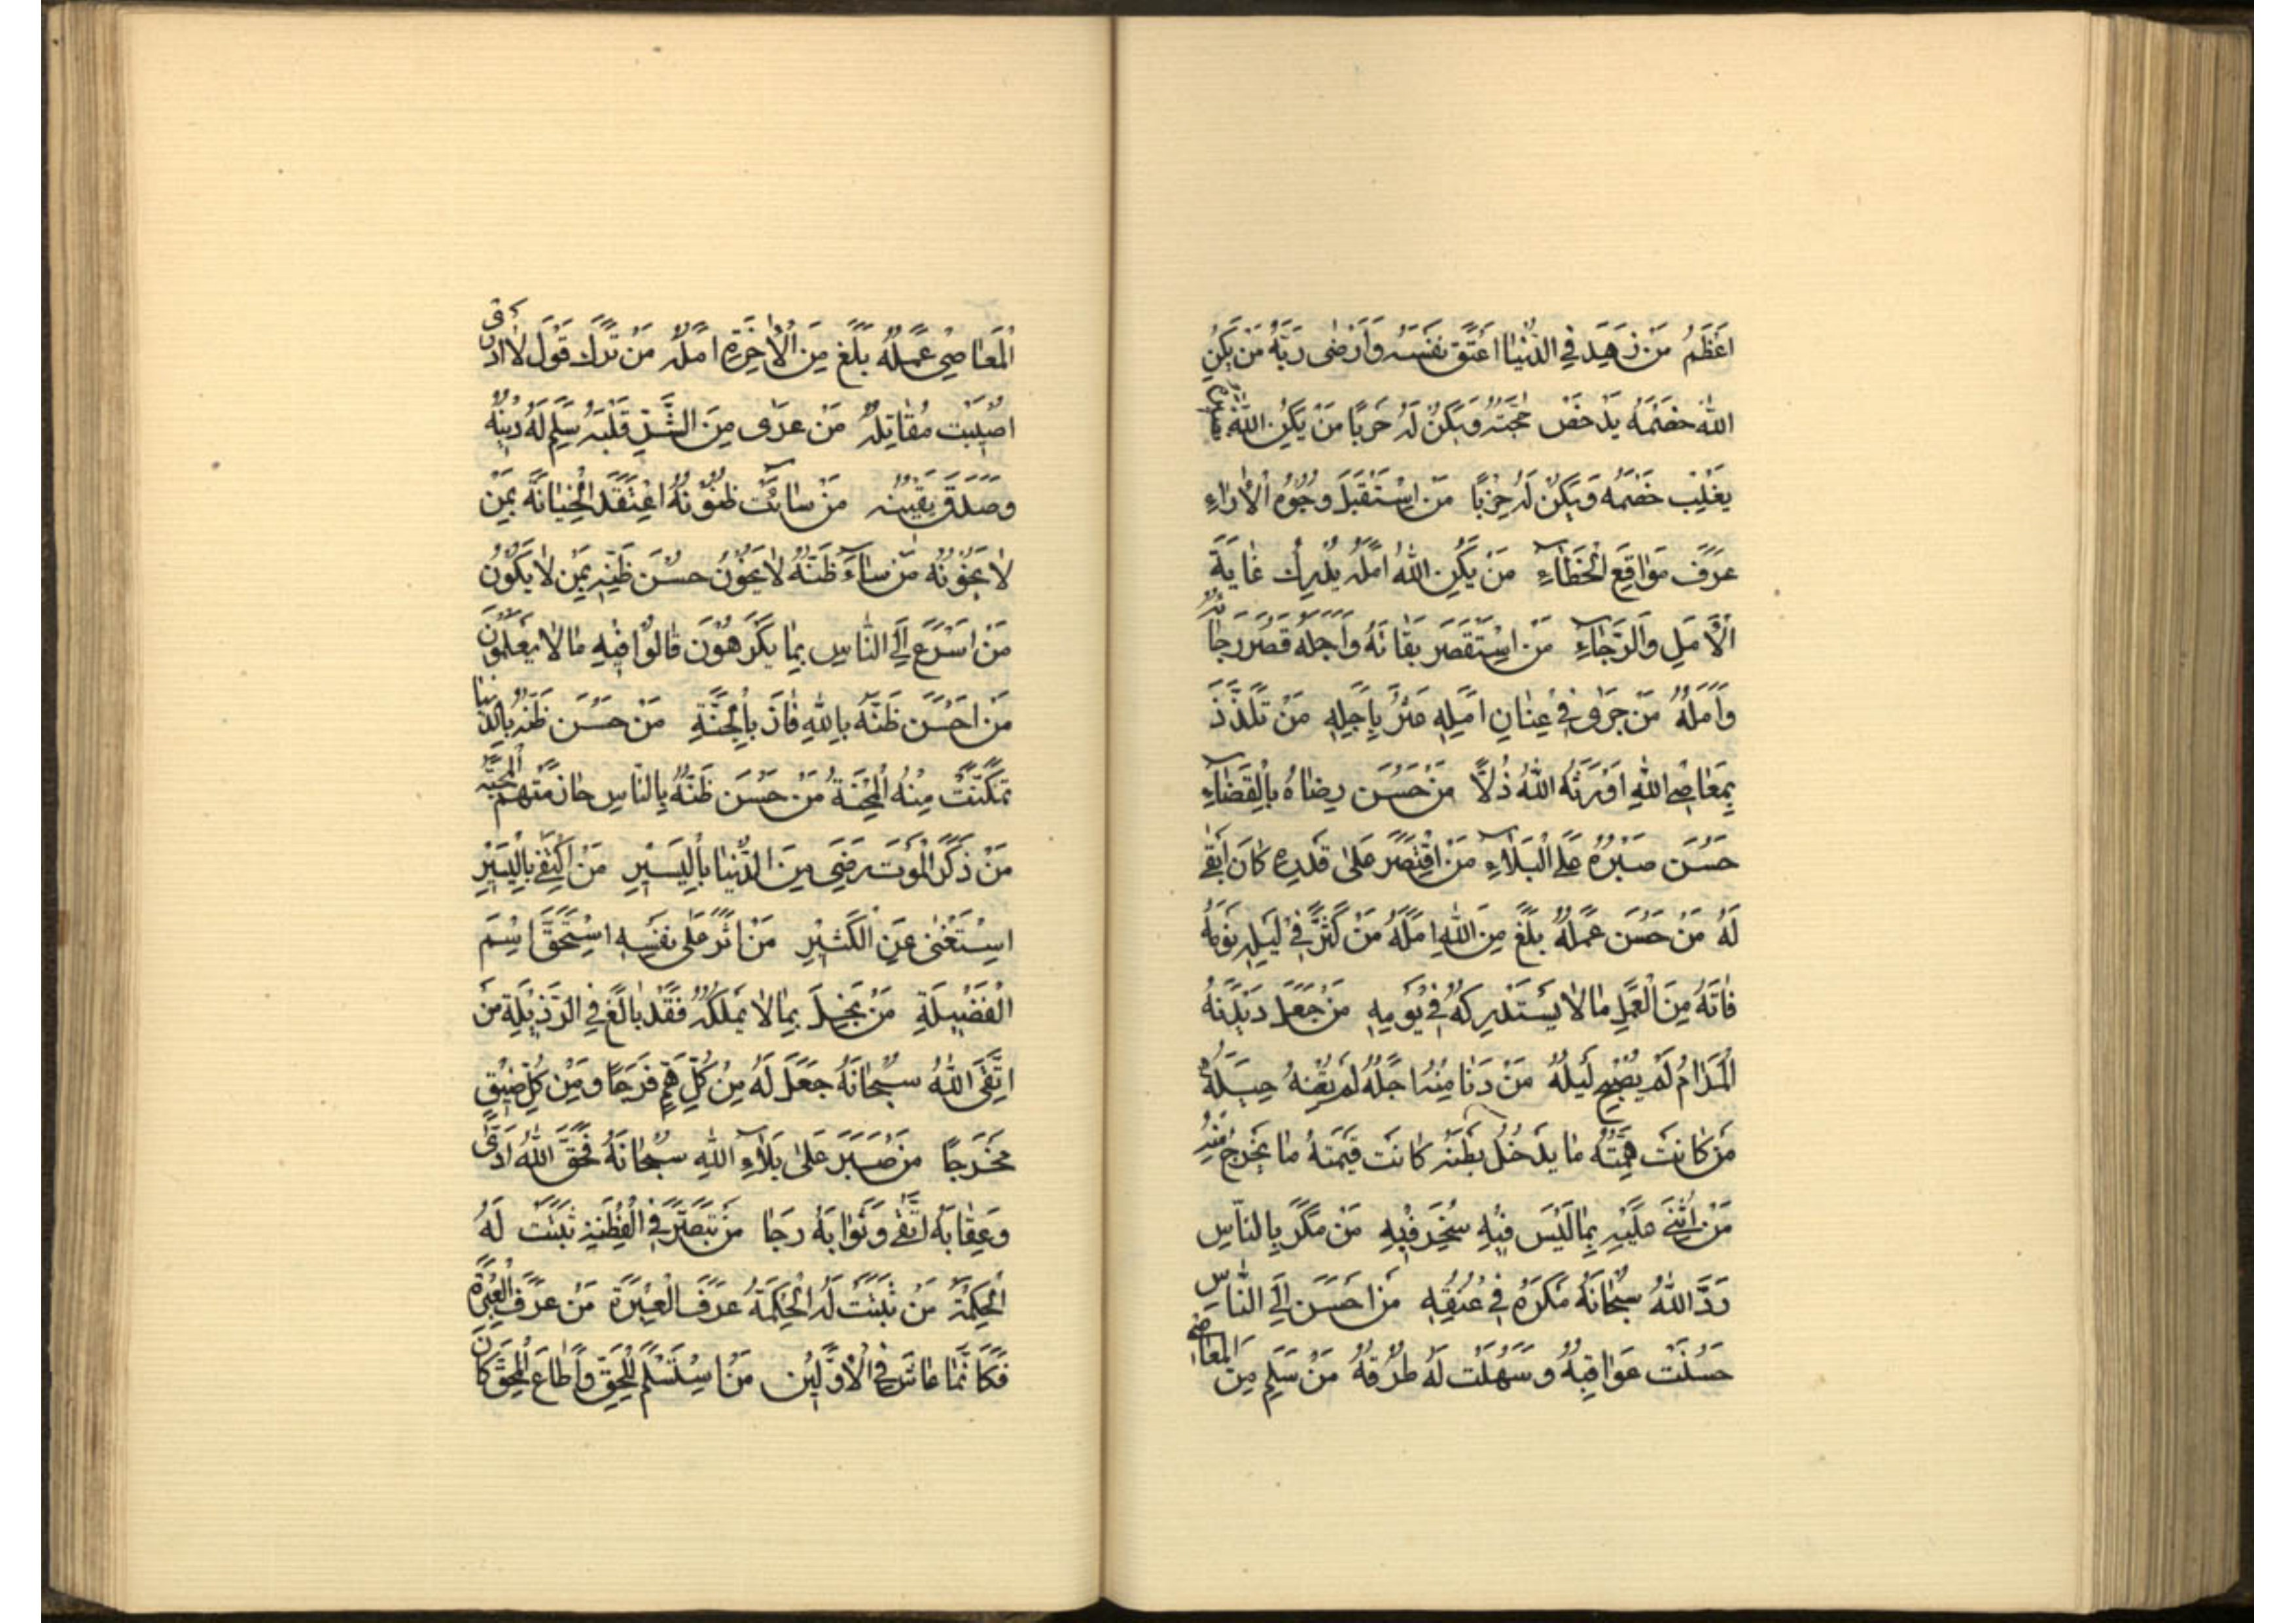 اَعْظَمُ مَنْ زَهِدَ فِي الدُّنْيَا اَعْتَقَ نَفْسَهُ وَاَرْضٰى رَبَّهُ مَنْ يَكُنِ
اللّٰهُ خَصْمَهُ يَدْحَضْ حُجَّتَهُ وَيَكُنْ لَهُ حَرْبًا مَنْ يَكُنِ اللّٰهُ
يَغْلِبْ خَصْمَهُ وَيَكُنْ لَهُ حِزْبًا مَنِ اسْتَقْبَلَ وُجُوهَ الْاٰرَاءِ
عَرَفَ مَوَاقِعَ الْخَطَاءِ مَنْ يَكُنِ اللّٰهُ اَمَلَهُ يُدْرِكْ غَايَةَ
الْاَمَلِ وَالرَّجَاءِ مَنِ اسْتَقْصَرَ بَقَائَهُ وَاَجَلَهُ قَصُرَ رَجَاؤُهُ
وَاَمَلُهُ مَنْ جَرٰى فِي عِنَانِ اَمَلِهِ عَثَرَ بِاَجَلِهِ مَنْ تَلَذَّذَ
بِمَعَاصِي اللّٰهِ اَوْرَثَهُ اللّٰهُ ذُلًّا مَنْ حَسُنَ رِضَاهُ بِالْقَضَاءِ
حَسُنَ صَبْرُهُ عَلَى الْبَلَاءِ مَنِ اقْتَصَرَ عَلٰى قَدْرِهِ كَانَ اَبْقٰى
لَهُ مَنْ حَسُنَ عَمَلُهُ بَلَغَ مِنَ اللّٰهِ اَمَلَهُ مَنْ كَثُرَ فِي لَيْلِهِ نَوْمُهُ
فَاتَهُ مِنَ الْعَمَلِ مَا لَا يَسْتَدْرِكُهُ فِي يَوْمِهِ مَنْ جَعَلَ دَيْدَنَهُ
الْمِرَاءَ لَمْ يُصْبِحْ لَيْلُهُ مَنْ دَنَا مِنْهُ اَجَلُهُ لَمْ يُغْنِهِ حِيَلُهُ
مَنْ كَانَتْ هِمَّتُهُ مَا يَدْخُلُ بَطْنَهُ كَانَتْ قِيمَتُهُ مَا يَخْرُجُ مِنْهُ
مَنْ اُثْنِيَ عَلَيْهِ بِمَا لَيْسَ فِيهِ سُخِرَ فِيهِ مَنْ مَكَرَ بِالنَّاسِ
رَدَّ اللّٰهُ سُبْحَانَهُ مَكْرَهُ فِي عُنُقِهِ مَنْ اَحْسَنَ اِلَى النَّاسِ
حَسُنَتْ عَوَاقِبُهُ وَسَهُلَتْ لَهُ طُرُقُهُ مَنْ سَلِمَ مِنَ الْمَعَاصِي
الْمَعَاصِي عَمَلُهُ بَلَغَ مِنَ الْاٰخِرَةِ اَمَلَهُ مَنْ تَرَكَ قَوْلَ لَا اَدْرِي
اُصِيبَتْ مَقَاتِلُهُ مَنْ عَرٰى مِنَ الشَّرِّ قَلْبُهُ سَلِمَ لَهُ دِينُهُ
وَصَدَقَ يَقِينُهُ مَنْ سَائَتْ ظُنُونُهُ اِعْتَقَدَ الْخِيَانَةَ بِمَنْ
لَا يَخُونُهُ مَنْ سَاءَ ظَنُّهُ لَا يَخُونُ حُسْنَ ظَنِّهِ بِمَنْ لَا يَكُونُ
مَنْ اَسْرَعَ اِلَى النَّاسِ بِمَا يَكْرَهُونَ قَالُوا فِيهِ مَا لَا يَعْلَمُونَ
مَنْ اَحْسَنَ ظَنَّهُ بِاللّٰهِ فَازَ بِالْجَنَّةِ مَنْ حَسُنَ ظَنُّهُ بِالدُّنْيَا
تَمَكَّنَتْ مِنْهُ الْمِحْنَةُ مَنْ حَسُنَ ظَنُّهُ بِالنَّاسِ حَازَ مِنْهُمُ الْمَحَبَّةَ
مَنْ ذَكَرَ الْمَوْتَ رَضِيَ مِنَ الدُّنْيَا بِالْيَسِيرِ مَنِ اكْتَفٰى بِالْيَسِيرِ
اسْتَغْنٰى عَنِ الْكَثِيرِ مَنْ اٰثَرَ عَلٰى نَفْسِهِ اسْتَحَقَّ اسْمَ
الْفَضِيلَةِ مَنْ بَخِلَ بِمَا لَا يَمْلِكُهُ فَقَدْ بَالَغَ فِي الرَّذِيلَةِ مَنِ
اتَّقَى اللّٰهَ سُبْحَانَهُ جَعَلَ لَهُ مِنْ كُلِّ هَمٍّ فَرَجًا وَمِنْ كُلِّ ضِيقٍ
مَخْرَجًا مَنْ صَبَرَ عَلٰى بَلَاءِ اللّٰهِ سُبْحَانَهُ فَحَقَّ اللّٰهِ اَدّٰى
وَعِقَابَهُ اتَّقٰى وَثَوَابَهُ رَجَا مَنْ تَبَصَّرَ فِي الْفِطْنَةِ ثَبَتَتْ لَهُ
الْحِكْمَةُ مَنْ ثَبَتَتْ لَهُ الْحِكْمَةُ عَرَفَ الْعِبْرَةَ مَنْ عَرَفَ الْعِبْرَةَ
فَكَاَنَّمَا عَاشَ فِي الْاَوَّلِينَ مَنِ اسْتَسْلَمَ لِلْحَقِّ وَاَطَاعَ الْمُحِقَّ كَانَ